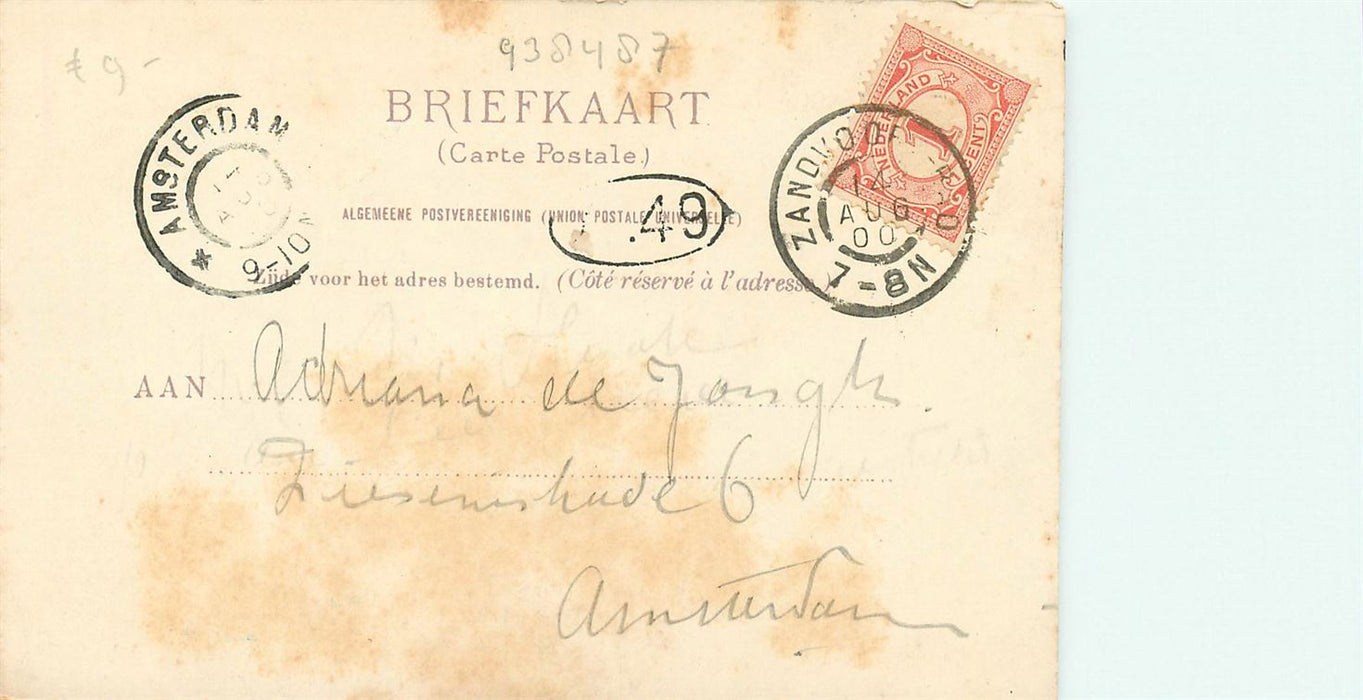 938487
€ 9-
BRIEFKAART
(Carte Postale.)
ALGEMEENE POSTVEREENIGING (UNION POSTALE UNIVERSELLE)
Zijde voor het adres bestemd. (Côté réservé à l'adresse.)
AMSTERDAM
9-10V
.49
NEDERLAND
1
CENT
ZANDVOORT
14
AUG
00
7-8N
AAN Adriana de Jongh.
6
Amsterdam